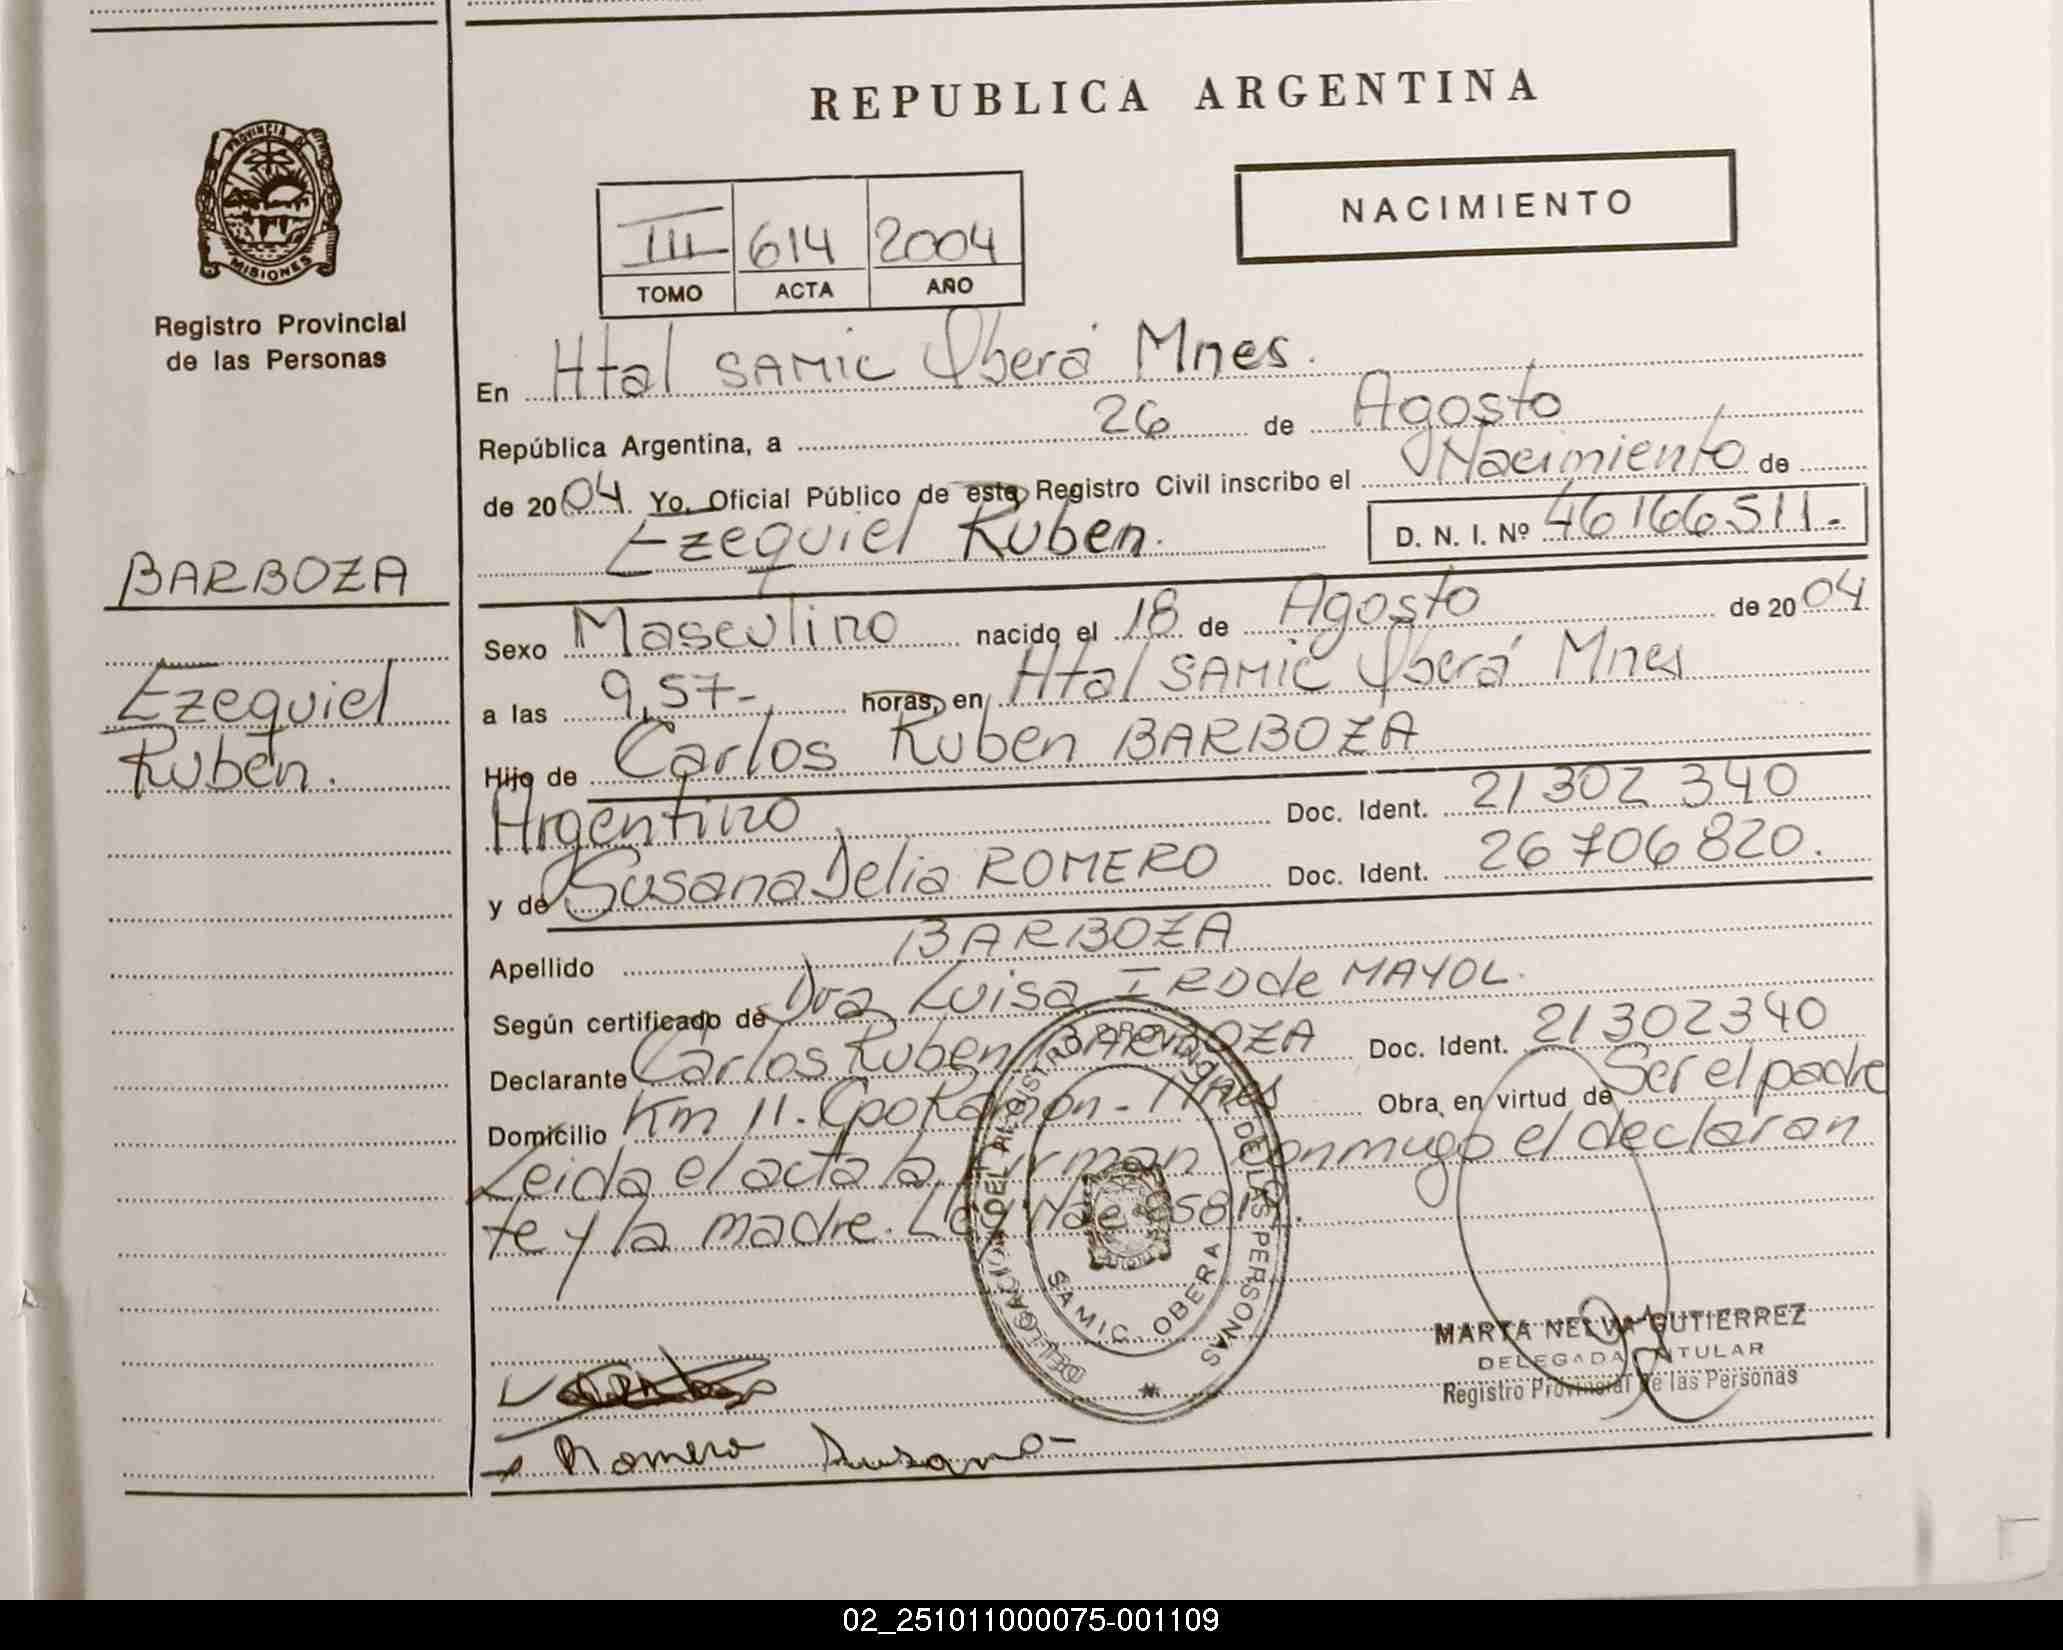 REPUBLICA ARGENTINA
PROVINCIA DE
MISIONES
Registro Provincial
de las Personas
NACIMIENTO
III 614 2004
TOMO ACTA AÑO
En Htal SAMIC Oberá Mnes.
República Argentina, a 26 de Agosto
de 2004 Yo, Oficial Público de este Registro Civil inscribo el Nacimiento de
Ezequiel Ruben. D. N. I. Nº 46166511.-
BARBOZA
Ezequiel
Ruben.
Sexo Masculino nacido el 18 de Agosto de 2004
a las 9,57- horas, en Htal SAMIC Oberá Mnes
Hijo de Carlos Ruben BARBOZA
Argentino Doc. Ident. 21 302 340
y de Susana Delia ROMERO Doc. Ident. 26 706 820.
Apellido BARBOZA
Según certificado de Dra Luisa IRO de MAYOL.
Declarante Carlos Ruben BARBOZA Doc. Ident. 21302340
Domicilio Km 11. Cpo Ramón - Mnes Obra en virtud de Ser el padre
Leida el acta la firman conmigo el declaran
te y la madre. Ley
DELEGACION DEL REGISTRO PROVINCIAL DE LAS PERSONAS
SAMIC. OBERA
MARTA NELVA GUTIERREZ
DELEGADA TITULAR
Registro Provincial de las Personas
Romero Susana-
02_251011000075-001109